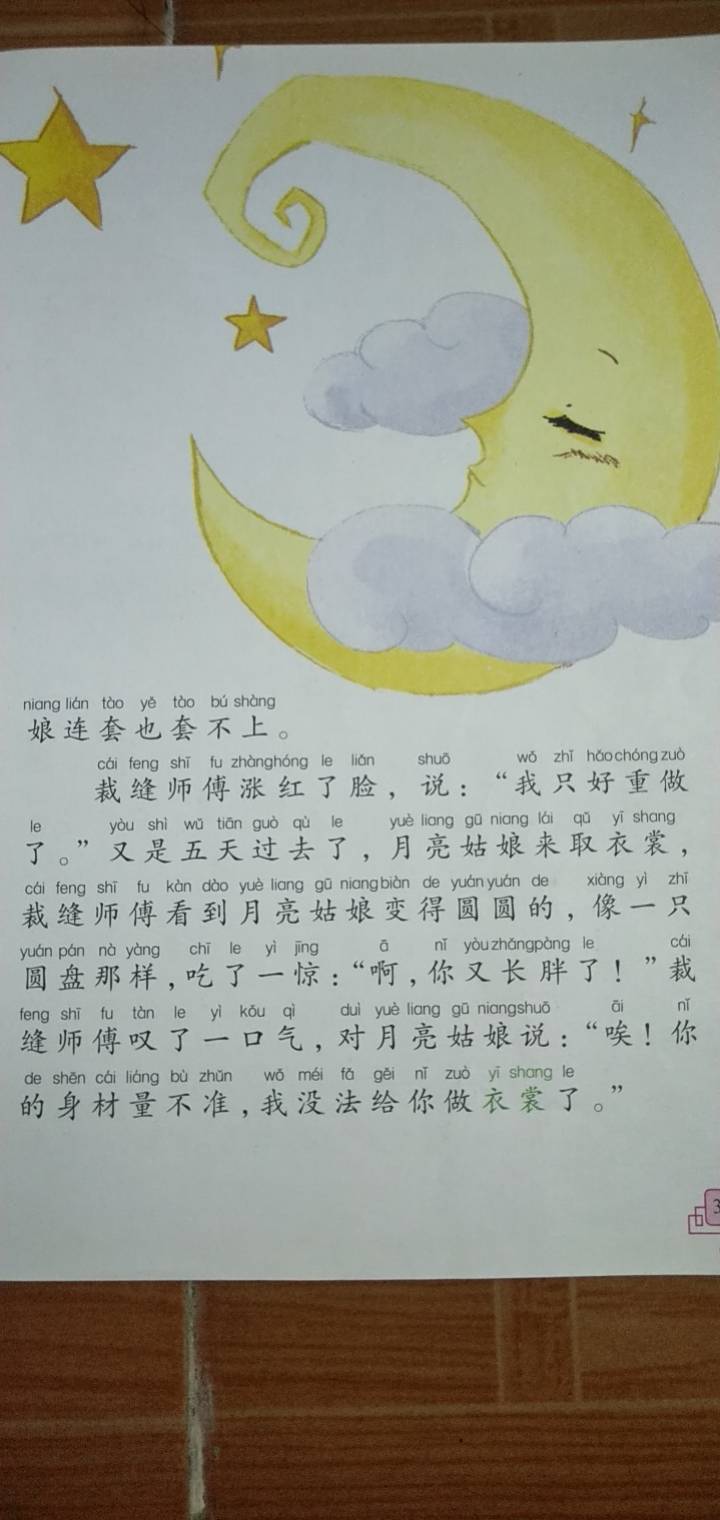 niang lián tào yě tào bú shàng
娘连套也套不上。
cái feng shī fu zhàng hóng le liǎn shuō wǒ zhǐ hǎo chóng zuò
裁缝师傅涨红了脸，说：“我只好重做
le yòu shì wǔ tiān guò qù le yuè liang gū niang lái qǔ yī shang
了。”又是五天过去了，月亮姑娘来取衣裳，
cái feng shī fu kàn dào yuè liang gū niang biàn de yuán yuán de xiàng yì zhī
裁缝师傅看到月亮姑娘变得圆圆的，像一只
yuán pán nà yàng chī le yì jīng ā nǐ yòu zhǎng pàng le cái
圆盘那样，吃了一惊：“啊，你又长胖了！”裁
feng shī fu tàn le yì kǒu qì duì yuè liang gū niang shuō āi nǐ
缝师傅叹了一口气，对月亮姑娘说：“唉！你
de shēn cái liáng bù zhǔn wǒ méi fǎ gěi nǐ zuò yī shang le
的身材量不准，我没法给你做衣裳了。”